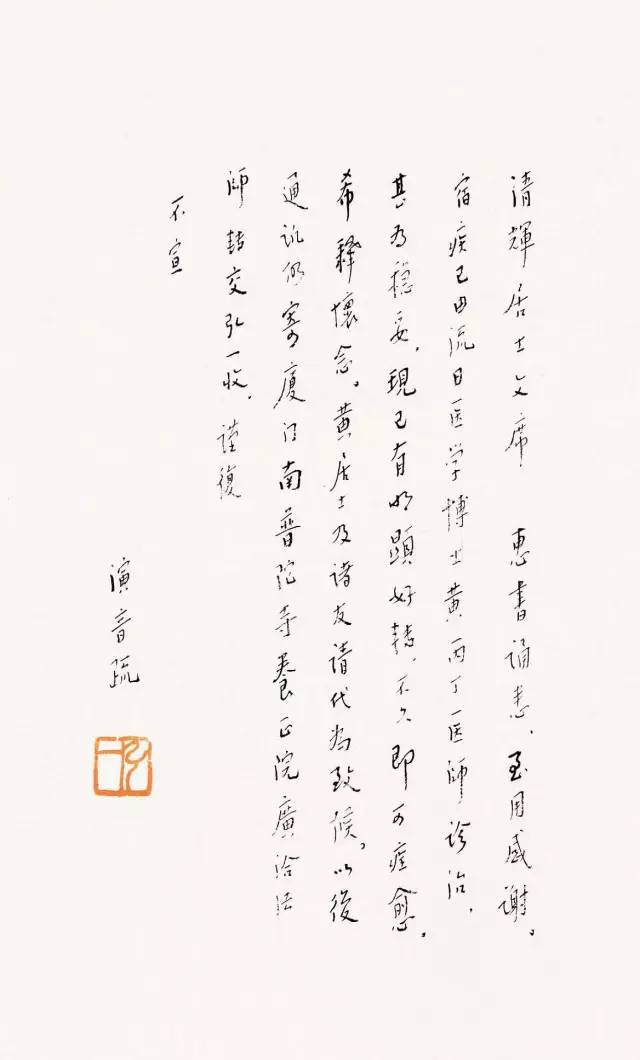 清輝居士文席　惠書誦悉、至用感謝。
宿疾已由流日医学博士黄丙丁医師诊治、
甚為穏妥、現已有明顕好轉、不久即可痊愈。
希釋懷念。黄居士及諸友請代為致候。以後
通訊仍寄廈门南普陀寺養正院廣洽法
師轉交弘一收、謹復
不宣
演音疏
弘一